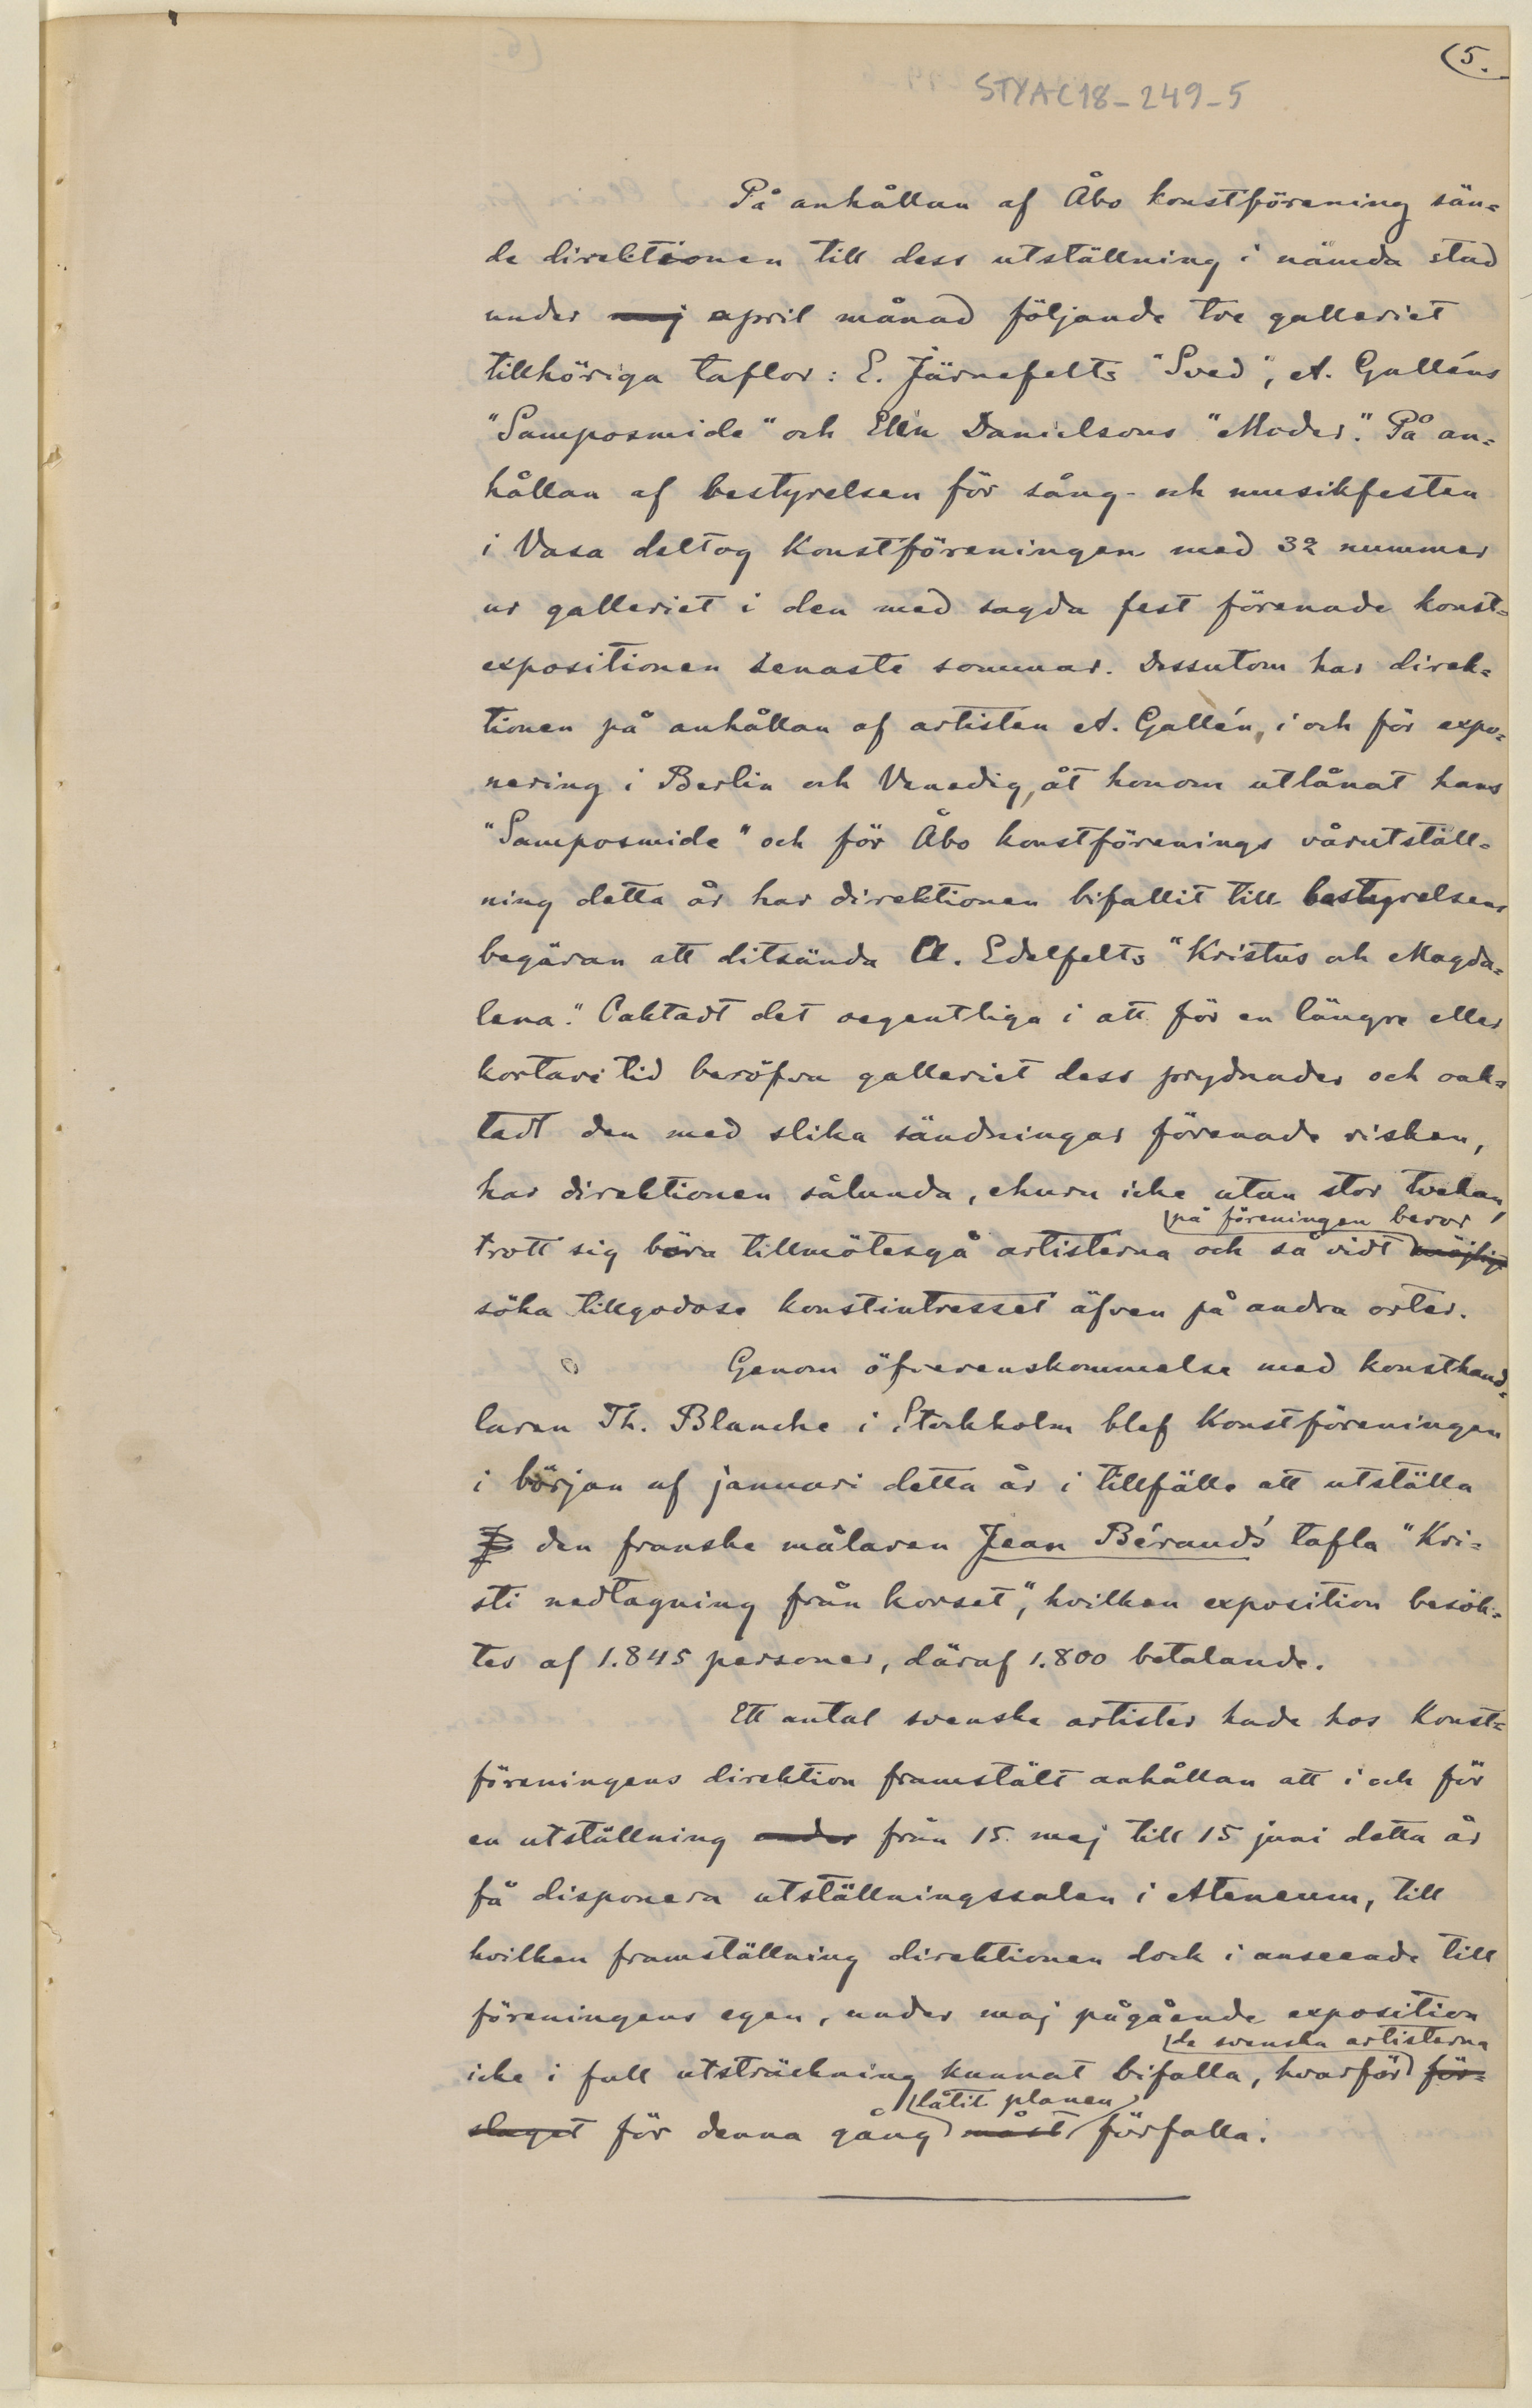 (5.
STYA-C18-249-5
På anhållan af Åbo konstförening sän=
de direktionen till dess utställning i nämda stad
under maj april månad följande tre galleriet
tillhöriga taflor: E. Järnefelts "Sved", A. Galléns
"Samposmide" och Elin Danielsons "Moder". På an=
hållan af bestyrelsen för sång- och musikfesten
i Vasa deltog Konstföreningen med 32 nummer
ur galleriet i den med sagda fest förenade konst=
expositionen senaste sommar. Dessutom har direk=
tionen på anhållan af artisten A. Gallén, i och för expo=
nering i Berlin och Venedig, åt honom utlånat hans
"Samposmide" och för Åbo konstförenings vårutställ=
ning detta år har direktionen bifallit till bestyrelsens
begäran att ditsända A. Edelfelts "Kristus och Magda=
lena". Oaktadt det oegentliga i att för en längre eller
kortare tid beröfva galleriet dess prydnader och oak=
tadt den med slika sändningar förenade risken,
har direktionen sålunda, ehuru icke utan stor tvekan,
på föreningen beror
trott sig böra tillmötesgå artisterna och så vidt möjligt
söka tillgodose konstintresset äfven på andra orter.
Genom öfverenskommelse med konsthand=
laren Th. Blanche i Stockholm blef Konstföreningen
i början af januari detta år i tillfälle att utställa
den franske målaren Jean Béraud's tafla "Kri=
sti nedtagning från korset", hvilken exposition besök=
tes af 1.845 personer, däraf 1.800 betalande.
Ett antal svenske artister hade hos Konst=
föreningens direktion framstält anhållan att i och för
en utställning under från 15. maj till 15 juni detta år
få disponera utställningssalen i Ateneum, till
hvilken framställning direktionen dock i anseende till
föreningens egen, under maj pågående exposition
de svenska artisterna
icke i full utsträckning kunnat bifalla, hvarför för=
låtit planen
slaget för denna gång måst förfalla.